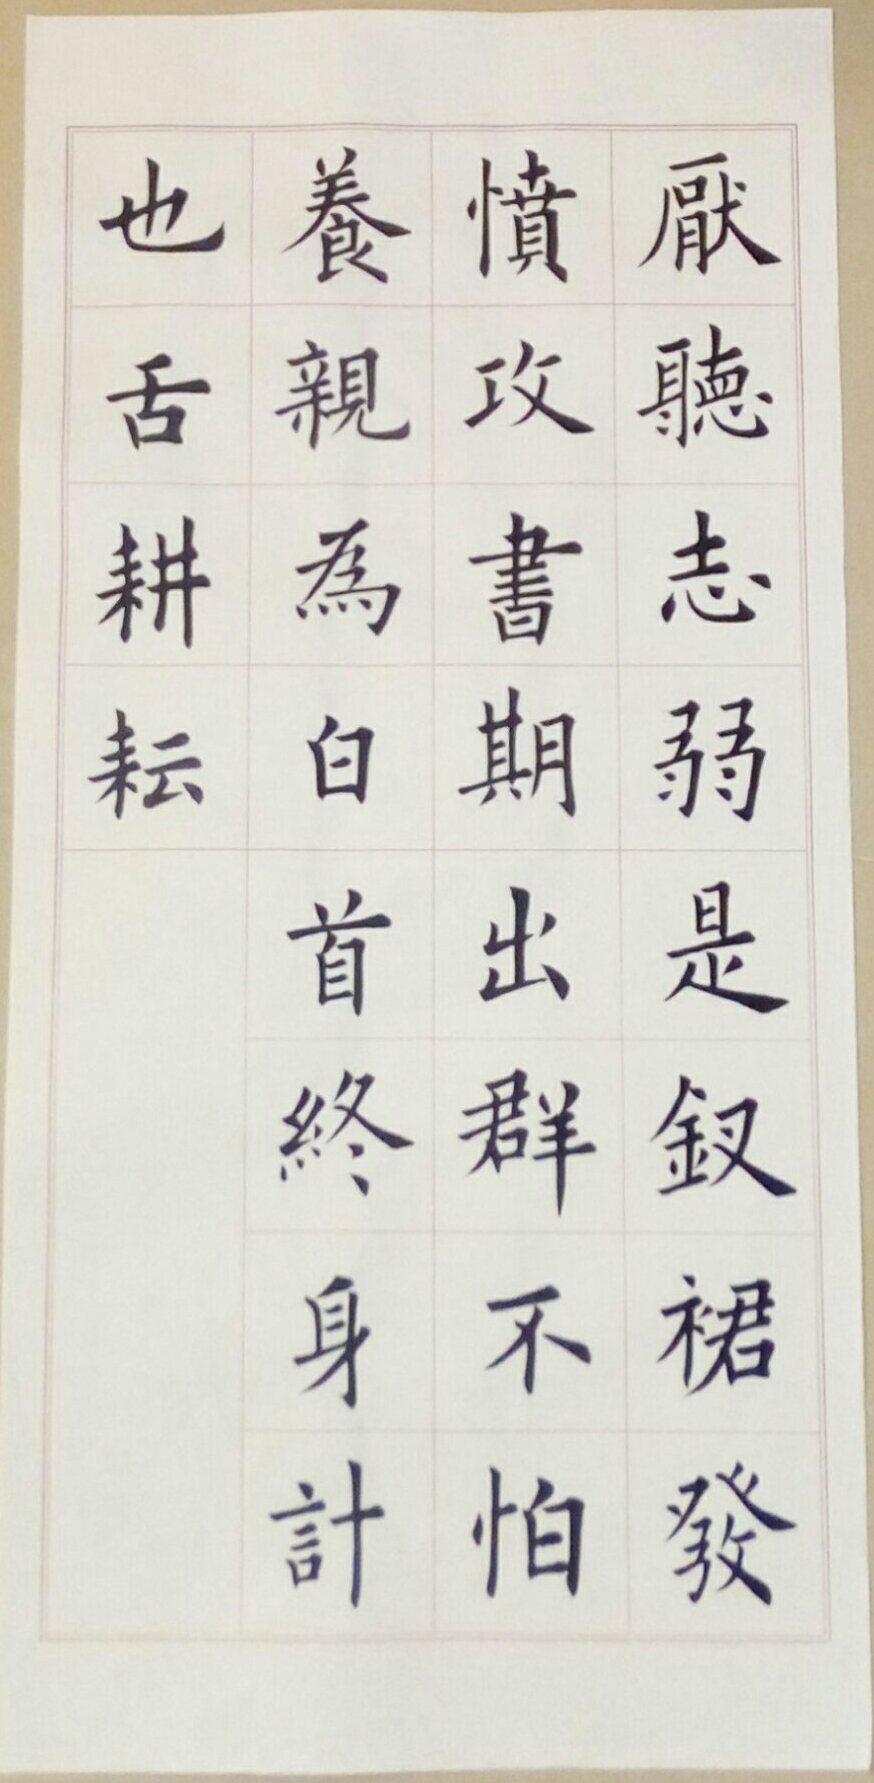 厭聽志弱是釵裙發
憤攻書期出群不怕
養親為白首終身計
也舌耕耘